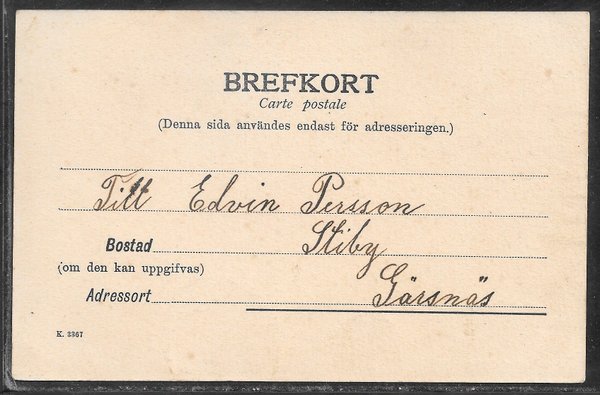 BREFKORT
Carte postale
(Denna sida användes endast för adresseringen.)
Till Edvin Persson
Bostad Stiby
(om den kan uppgifvas)
Adressort Gärsnäs
K. 3367